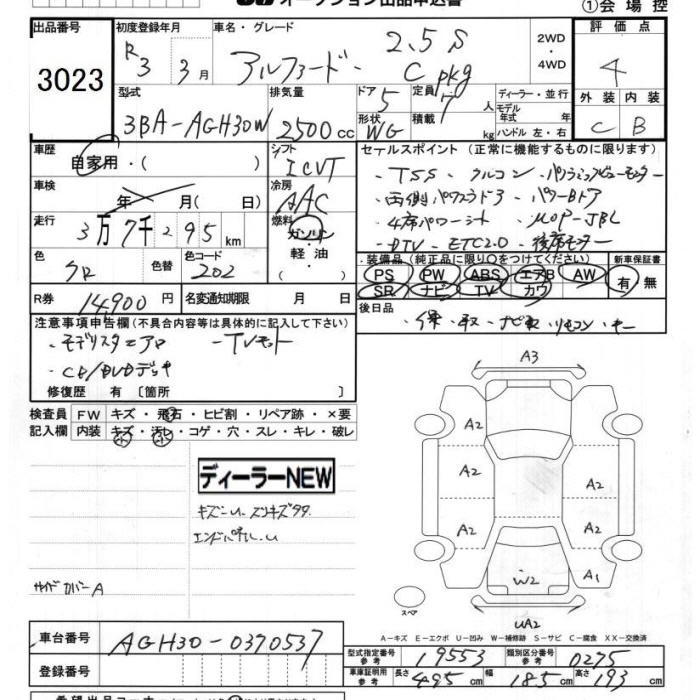 オークション出品申込書
①会場控
出品番号 3023
初度登録年月 R3 3月
車名・グレード アルファード 2.5S Cpkg
2WD・4WD
評価点 4
外装 C 内装 B
型式 3BA-AGH30W
排気量 2500cc
ドア 5 形状 WG
定員 7人 積載 kg
ディーラー・並行
モデル年式 年式
ハンドル 左・右
車歴 自家用・( )
シフト ICVT
車検 年 月( 日)
冷房 AAC
走行 3万7千295km
燃料 ガソリン 軽油・( )
色 クロ 色替 色コード 202
R券 14,900円 名変通知期限 月 日
セールスポイント(正常に機能するものに限ります)
・TSS ・クルコン ・パノラミックビューモニター
・両側パワスラドア ・パワーBドア
・4席パワーシート ・MOP-JBL
・DTV ・ETC2.0 ・後席モニター
装備品(純正品に限り○をつけてください)
PS PW ABS エアB AW
SR ナビ TV カワ
新車保証書 有・無
後日品 ・保・取・ナビ取・リモコン・キー
注意事項申告欄(不具合内容等は具体的に記入して下さい)
・モデリスタエアロ -TVキット
・CD/DVDデッキ
修復歴 有〔箇所 〕
検査員記入欄 FW キズ・飛石・ヒビ割・リペア跡・×要
内装 キズ・汚レ・コゲ・穴・スレ・キレ・破レ
ディーラーNEW
サイドカバーA
A3
A2
A2 A2
A2 A2
W2 A1
UA2
スペア
A-キズ E-エクボ U-凹み W-補修跡 S-サビ C-腐食 XX-交換済
車台番号 AGH30-0370537
登録番号
型式指定番号 参考 19553 類別区分番号 参考 0275
車庫証明用 参考 長さ 495cm 幅 185cm 高さ 193cm